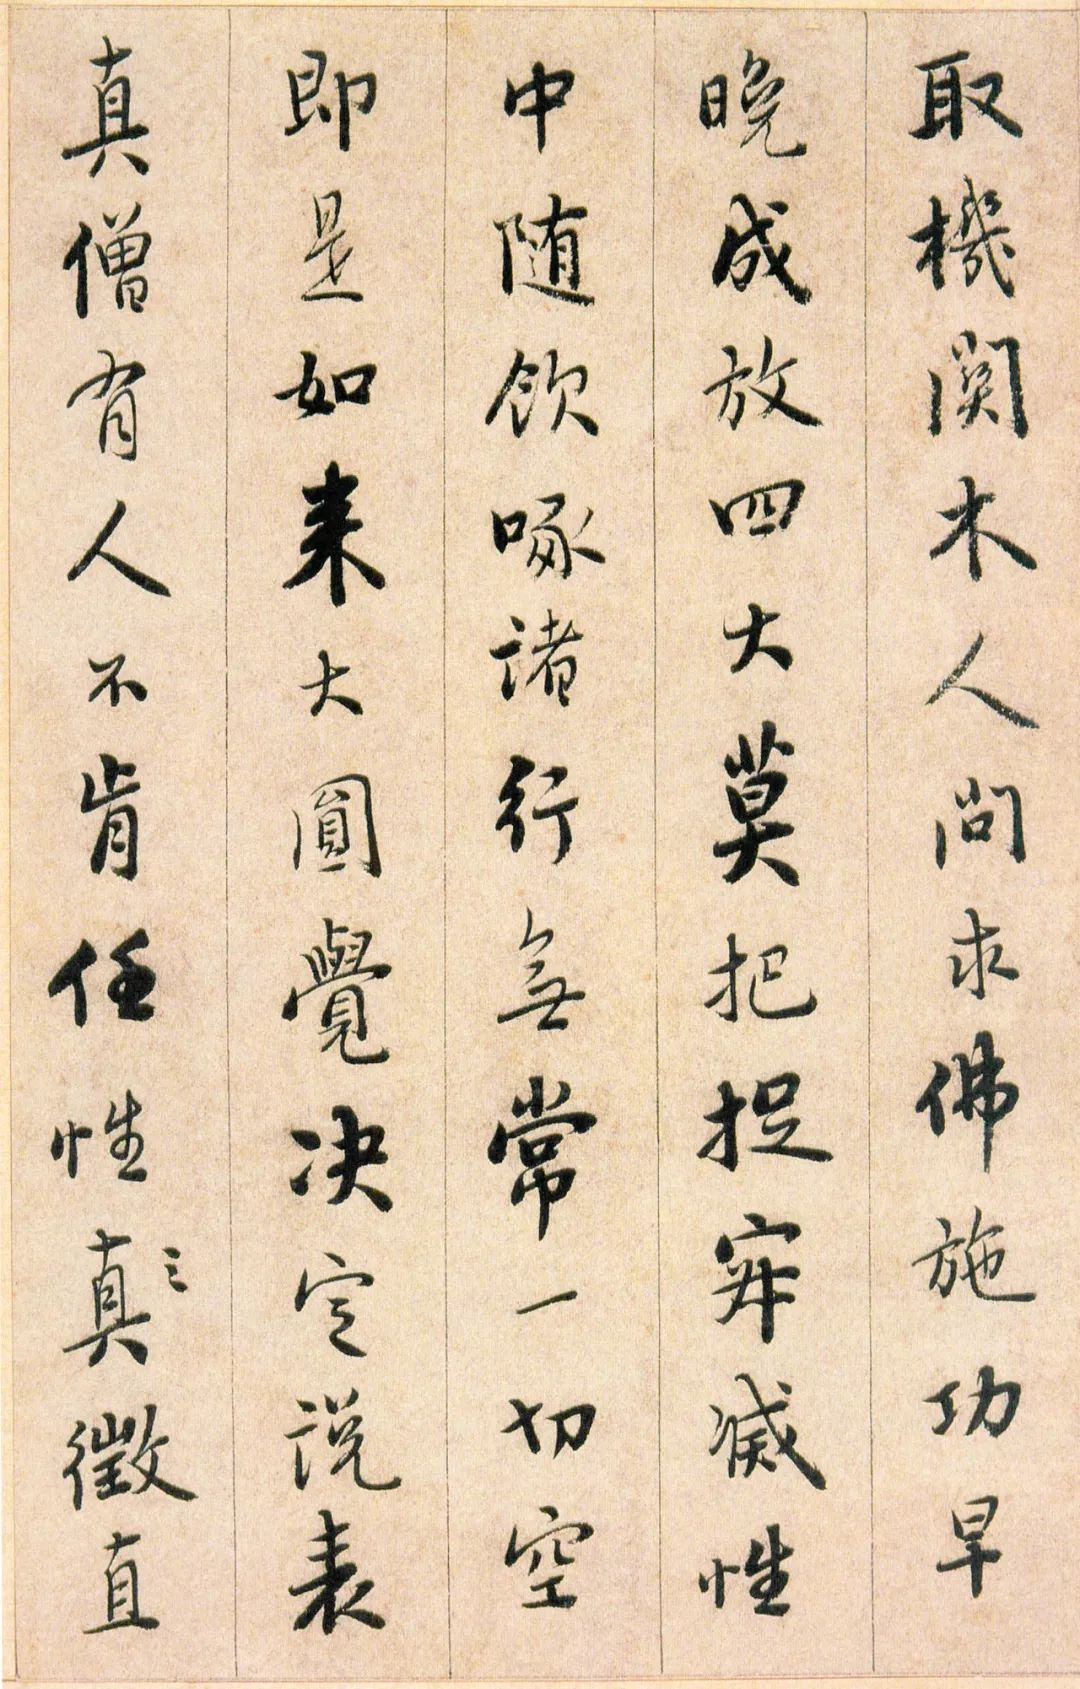 取機関木人問求佛施功早
晩成放四大莫把捉寂滅性
中随飲啄諸行無常一切空
即是如来大圓覺决定説表
真僧有人不肯任性真徵直
三